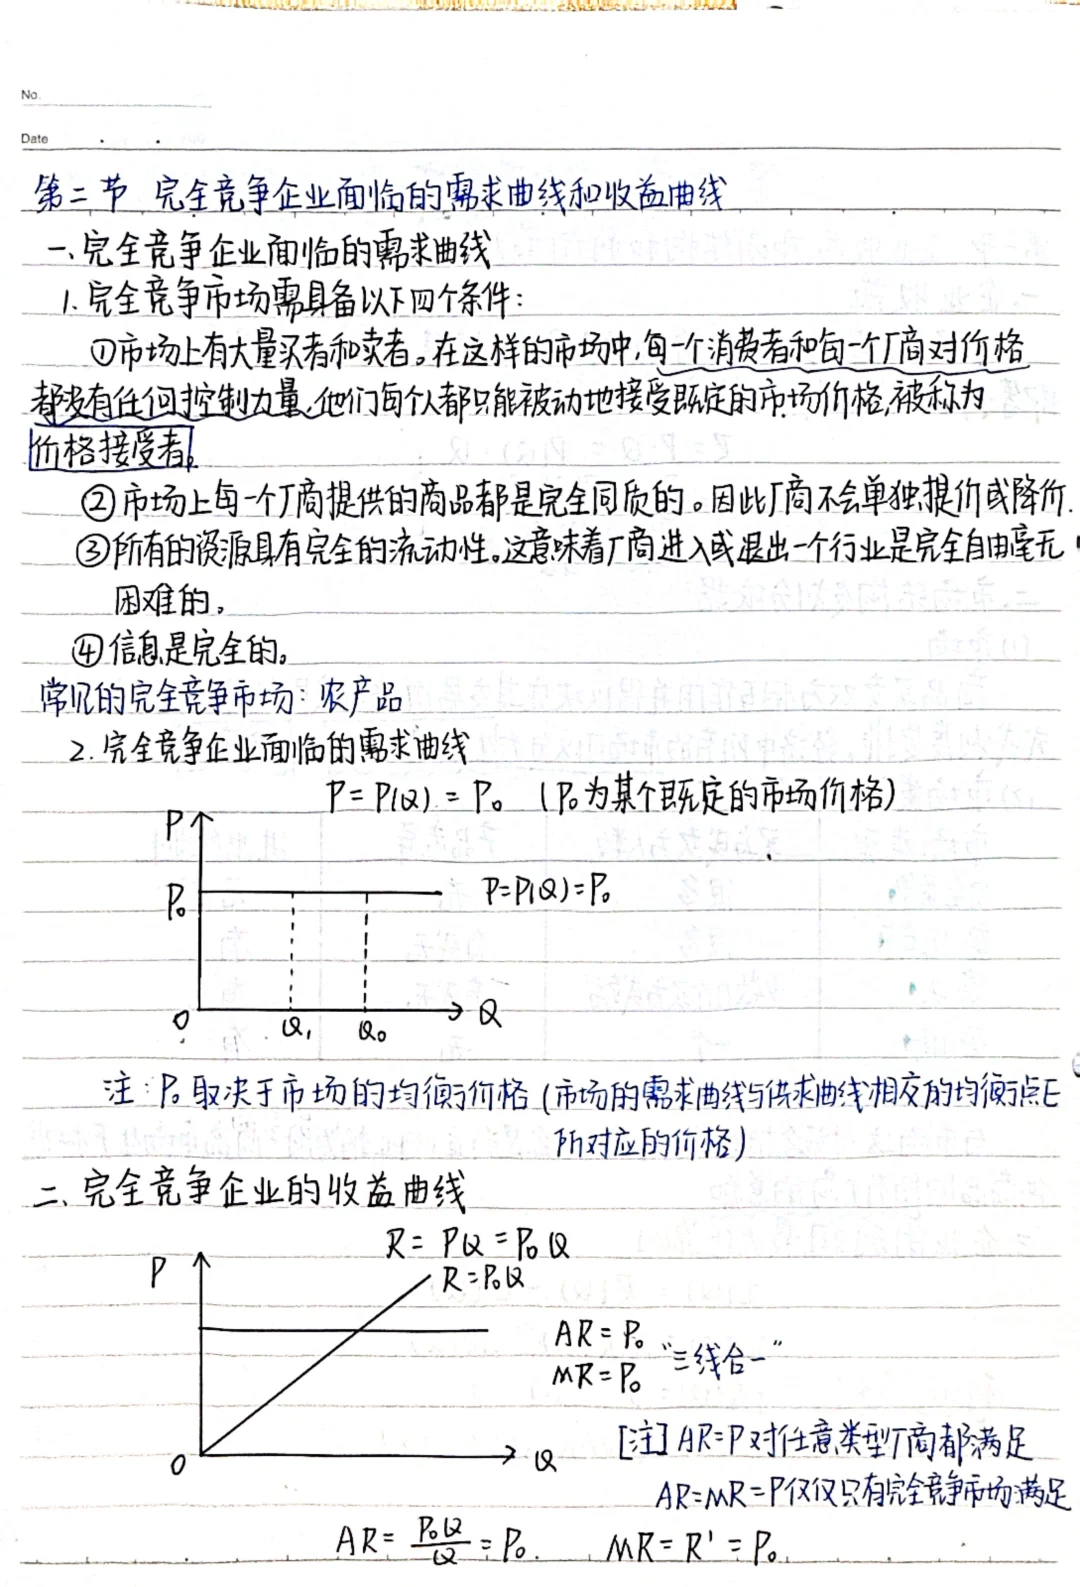 No.
Date
第二节 完全竞争企业面临的需求曲线和收益曲线
一、完全竞争企业面临的需求曲线
1. 完全竞争市场需具备以下四个条件:
①市场上有大量买者和卖者。在这样的市场中,每一个消费者和每一个厂商对价格
都没有任何控制力量,他们每个人都只能被动地接受既定的市场价格,被称为
价格接受者。
②市场上每一个厂商提供的商品都是完全同质的。因此厂商不会单独提价或降价.
③所有的资源具有完全的流动性。这意味着厂商进入或退出一个行业是完全自由毫无
困难的。
④信息是完全的。
常见的完全竞争市场: 农产品
2. 完全竞争企业面临的需求曲线
P = P(Q) = P₀ (P₀为某个既定的市场价格)
P
P₀
P=P(Q)=P₀
O
Q₁
Q₀
Q
注: P₀取决于市场的均衡价格(市场的需求曲线与供求曲线相交的均衡点E
所对应的价格)
二、完全竞争企业的收益曲线
R = PQ = P₀Q
P
R=P₀Q
AR = P₀
MR = P₀
“三线合一”
O
Q
[注] AR=P对任意类型厂商都满足
AR=MR=P仅仅只有完全竞争市场满足
AR = P₀Q/Q = P₀. MR = R' = P₀.